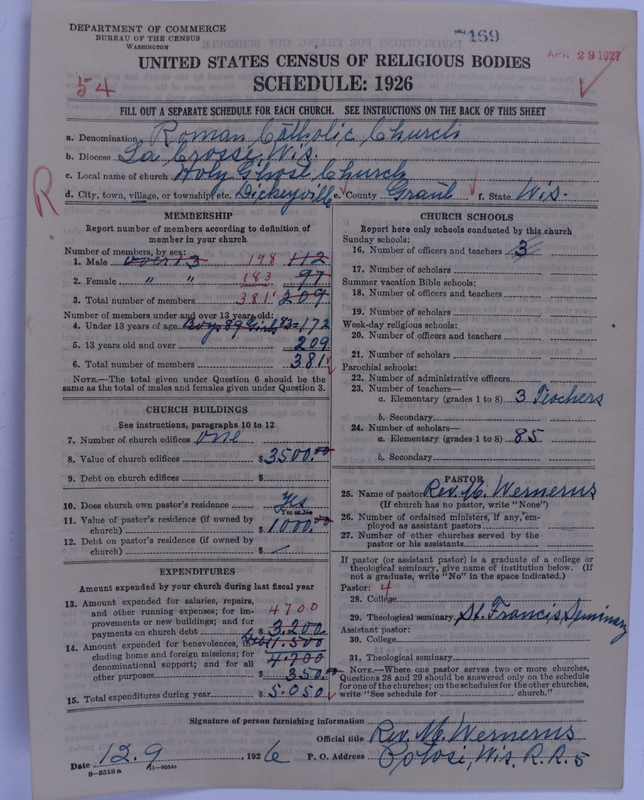 DEPARTMENT OF COMMERCE
BUREAU OF THE CENSUS
WASHINGTON
169
APR 29 1927
UNITED STATES CENSUS OF RELIGIOUS BODIES
54
SCHEDULE: 1926
FILL OUT A SEPARATE SCHEDULE FOR EACH CHURCH. SEE INSTRUCTIONS ON THE BACK OF THIS SHEET
a. Denomination Roman Catholic Church
b. Diocese La Crosse, Wis.
c. Local name of church Holy Ghost Church
R
d. City, town, village, or township, etc. Dickeyville e. County Grant f. State Wis.
MEMBERSHIP
Report number of members according to definition of member in your church
Number of members, by sex:
1. Male over 13 198 112
2. Female " " 183 97
3. Total number of members 381 209
Number of members under and over 13 years old:
4. Under 13 years of age Boys 89 Girls 83=172
5. 13 years old and over 209
6. Total number of members 381
NOTE.—The total given under Question 6 should be the same as the total of males and females given under Question 3.
CHURCH BUILDINGS
See instructions, paragraphs 10 to 12
7. Number of church edifices one
8. Value of church edifices $ 3500.00
9. Debt on church edifices $
10. Does church own pastor's residence Yes
Yes or No
11. Value of pastor's residence (if owned by church) $ 1000.00
12. Debt on pastor's residence (if owned by church) $
EXPENDITURES
Amount expended by your church during last fiscal year
13. Amount expended for salaries, repairs, and other running expenses; for improvements or new buildings; and for payments on church debt 4700 $ 3.200.
14. Amount expended for benevolences, including home and foreign missions; for denominational support; and for all other purposes 1,500 4,700 $ 350.
15. Total expenditures during year $ 5.050
CHURCH SCHOOLS
Report here only schools conducted by this church
Sunday schools:
16. Number of officers and teachers 3
17. Number of scholars
Summer vacation Bible schools:
18. Number of officers and teachers
19. Number of scholars
Week-day religious schools:
20. Number of officers and teachers
21. Number of scholars
Parochial schools:
22. Number of administrative officers
23. Number of teachers—
a. Elementary (grades 1 to 8) 3 Teachers
b. Secondary
24. Number of scholars—
a. Elementary (grades 1 to 8) 85
b. Secondary
PASTOR
25. Name of pastor Rev. M. Wernerus
(If church has no pastor, write "None")
26. Number of ordained ministers, if any, employed as assistant pastors
27. Number of other churches served by the pastor or his assistants
If pastor (or assistant pastor) is a graduate of a college or theological seminary, give name of institution below. (If not a graduate, write "No" in the space indicated.)
Pastor: 4
28. College
29. Theological seminary St. Francis Seminary
Assistant pastor:
30. College
31. Theological seminary
NOTE.—Where one pastor serves two or more churches, Questions 28 and 29 should be answered only on the schedule for one of the churches; on the schedules for the other churches, write "See schedule for church."
Signature of person furnishing information
Official title Rev. M. Wernerus
Date 12.9, 1926 P. O. Address Potosi, Wis. R.R. 5
8—5518a